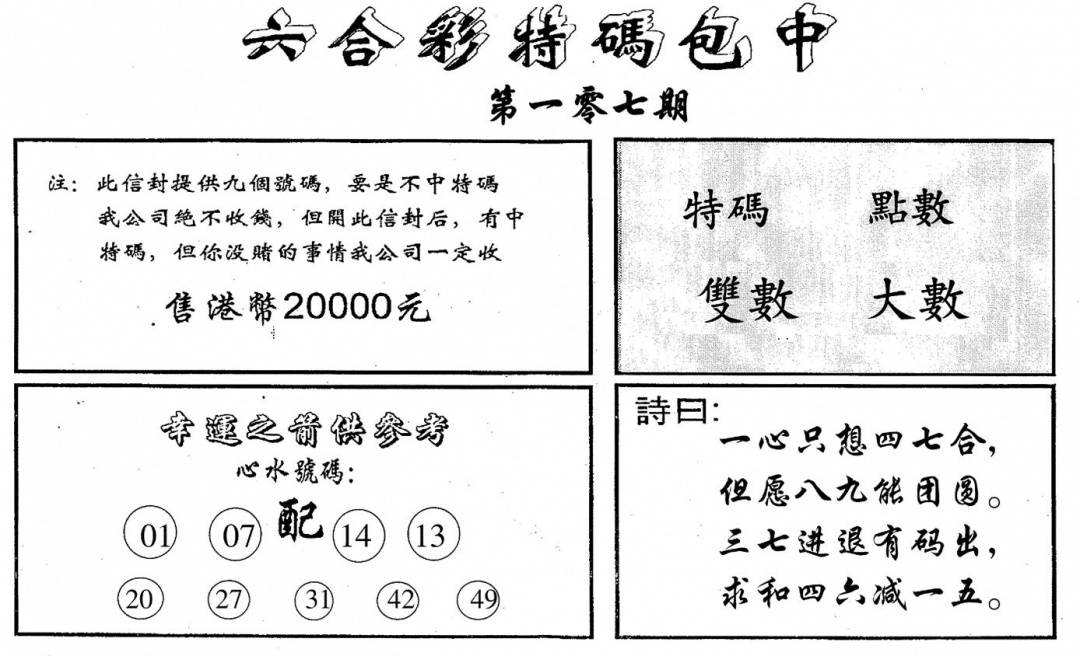 六合彩特碼包中
第一零七期
注：此信封提供九個號碼，要是不中特碼
我公司絕不收錢，但開此信封后，有中
特碼，但你没賭的事情我公司一定收
售港幣20000元
特碼 點數
雙數 大數
幸運之箭供參考
心水號碼：
01 07 配 14 13
20 27 31 42 49
詩曰：
一心只想四七合，
但愿八九能团圆。
三七进退有码出，
求和四六减一五。